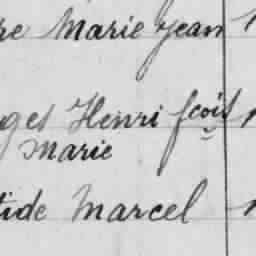 re Marie Jean
ges Henri fcois
Marie
tide Marcel